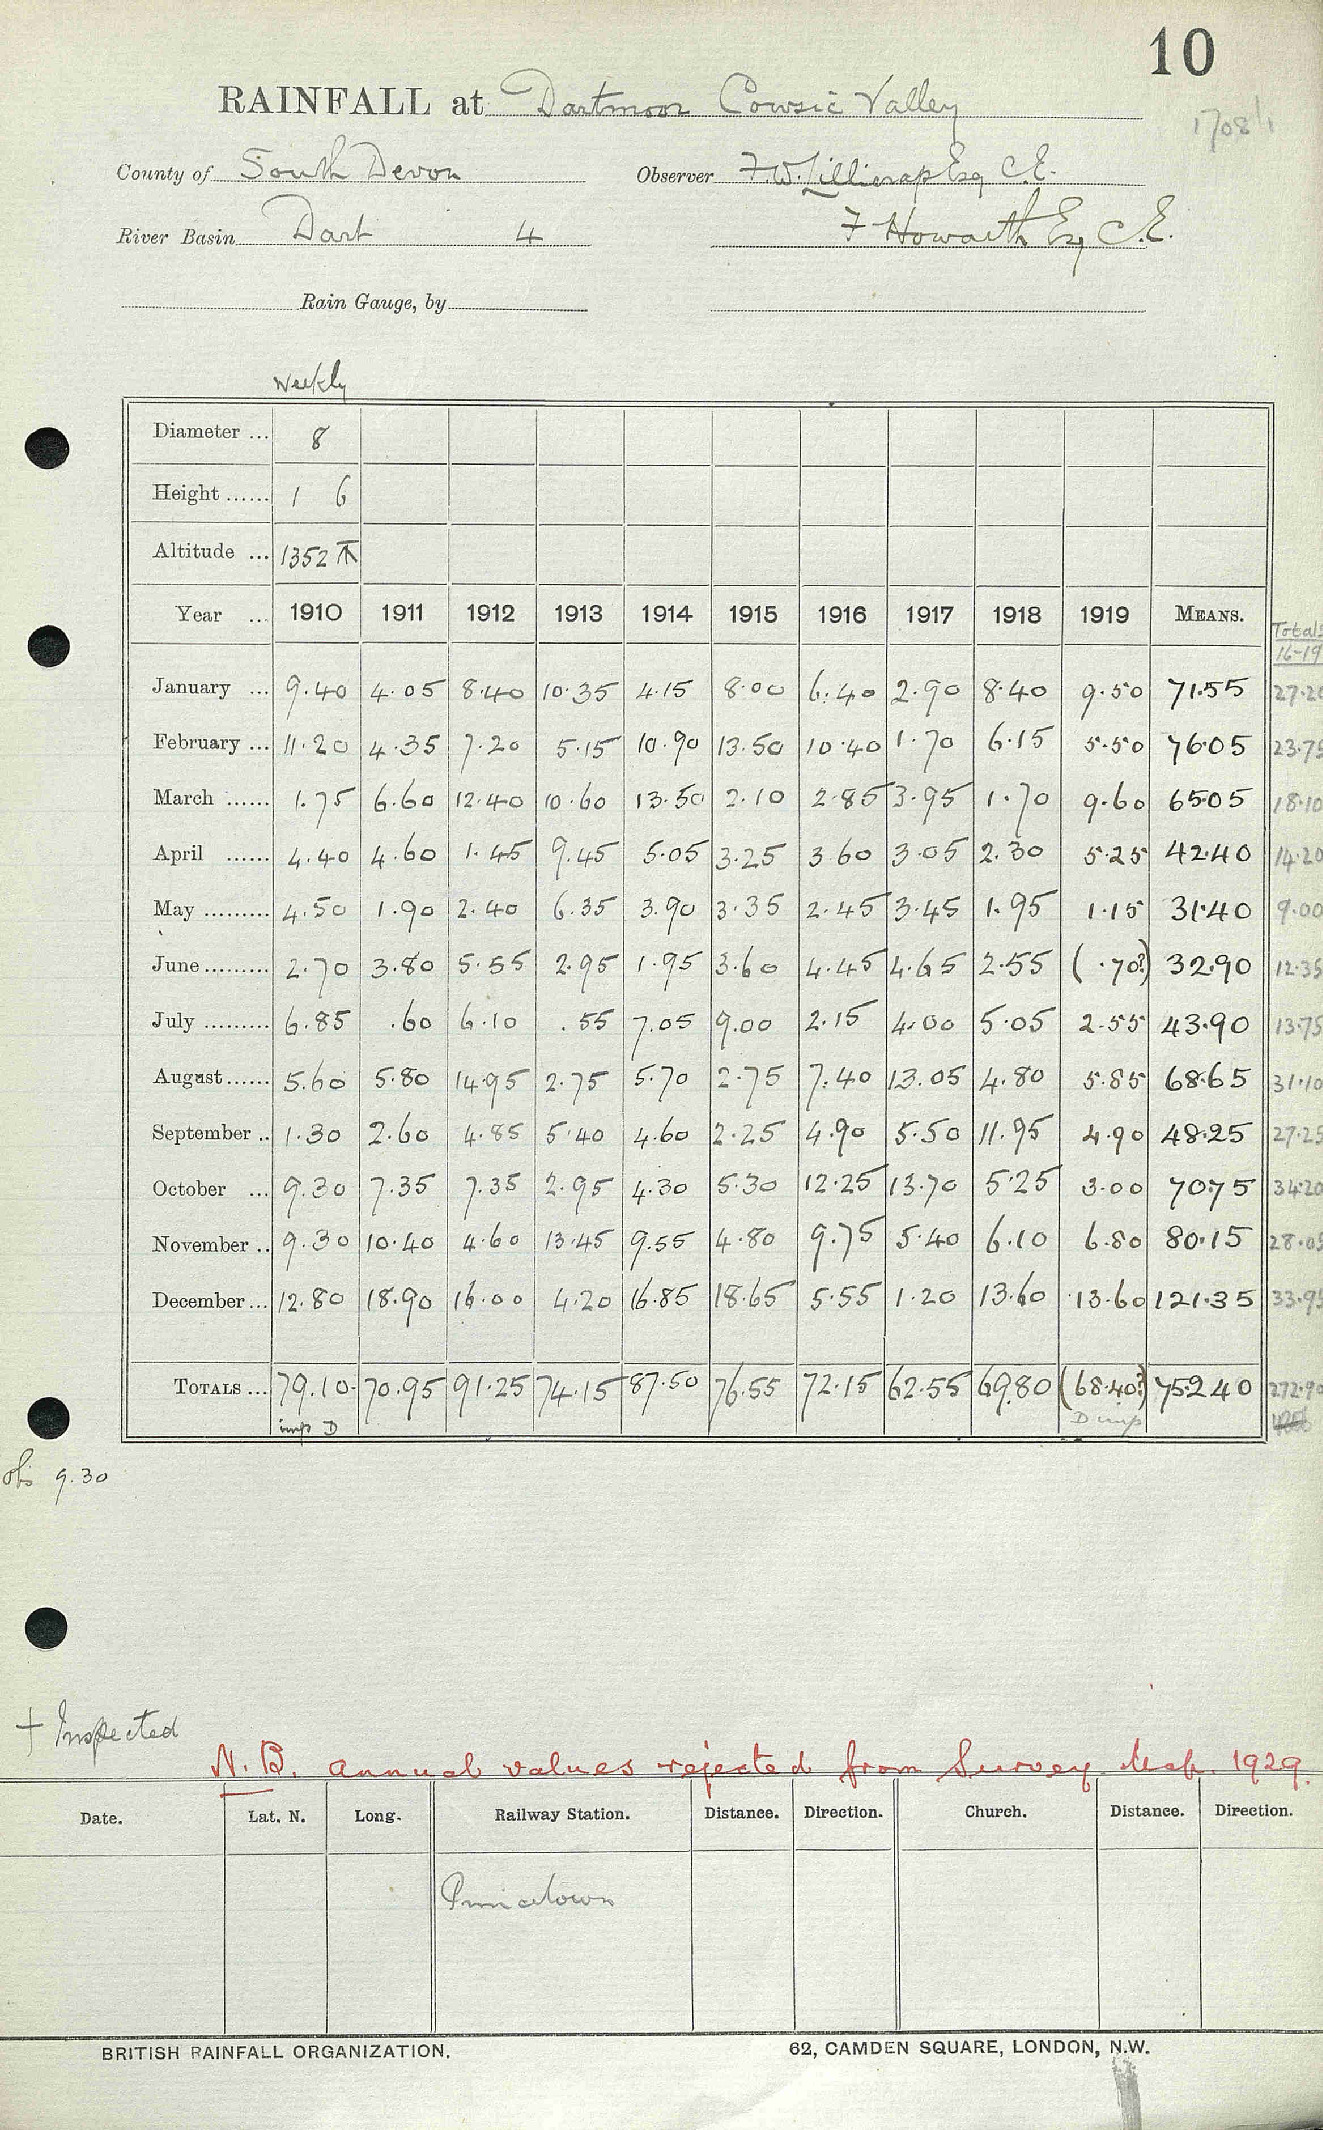 10
RAINFALL at Dartmoor Cowsic Valley
1708/1
County of South Devon Observer F.W. Lillicrap Esq C.E.
River Basin Dart 4 F Howarth Esq C.E.
Rain Gauge, by
Weekly
Diameter ... 8
Height ...... 1 6
Altitude ... 1352
Year ... 1910 1911 1912 1913 1914 1915 1916 1917 1918 1919 MEANS. Totals 16-19
January ... 9.40 4.05 8.40 10.35 4.15 8.00 6.40 2.90 8.40 9.50 71.55 27.20
February ... 11.20 4.35 7.20 5.15 10.90 13.50 10.40 1.70 6.15 5.50 76.05 23.75
March ...... 1.75 6.60 12.40 10.60 13.50 2.10 2.85 3.95 1.70 9.60 65.05 18.10
April ...... 4.40 4.60 1.45 9.45 5.05 3.25 3.60 3.05 2.30 5.25 42.40 14.20
May ......... 4.50 1.90 2.40 6.35 3.90 3.35 2.45 3.45 1.95 1.15 31.40 9.00
June ......... 2.70 3.80 5.55 2.95 1.95 3.60 4.45 4.65 2.55 (.70?) 32.90 12.35
July ......... 6.85 .60 6.10 .55 7.05 9.00 2.15 4.00 5.05 2.55 43.90 13.75
August ...... 5.60 5.80 14.95 2.75 5.70 2.75 7.40 13.05 4.80 5.85 68.65 31.10
September .. 1.30 2.60 4.85 5.40 4.60 2.25 4.90 5.50 11.95 4.90 48.25 27.25
October ... 9.30 7.35 7.35 2.95 4.30 5.30 12.25 13.70 5.25 3.00 70.75 34.20
November .. 9.30 10.40 4.60 13.45 9.55 4.80 9.75 5.40 6.10 6.80 80.15 28.05
December ... 12.80 18.90 16.00 4.20 16.85 18.65 5.55 1.20 13.60 13.60 121.35 33.95
TOTALS ... 79.10 70.95 91.25 74.15 87.50 76.55 72.15 62.55 69.80 (68.40?) 752.40 272.90
imp D D imp
9.30
+ Inspected
N.B. annual values rejected from Survey Map. 1929.
Date. Lat. N. Long. Railway Station. Distance. Direction. Church. Distance. Direction.
Princetown
BRITISH RAINFALL ORGANIZATION. 62, CAMDEN SQUARE, LONDON, N.W.